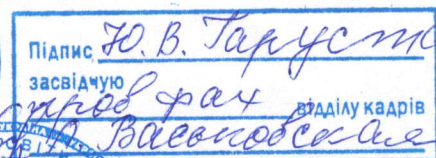 Підпис Ю. В. Гарусто
засвідчую
пров фах відділу кадрів
Ю Васьковская